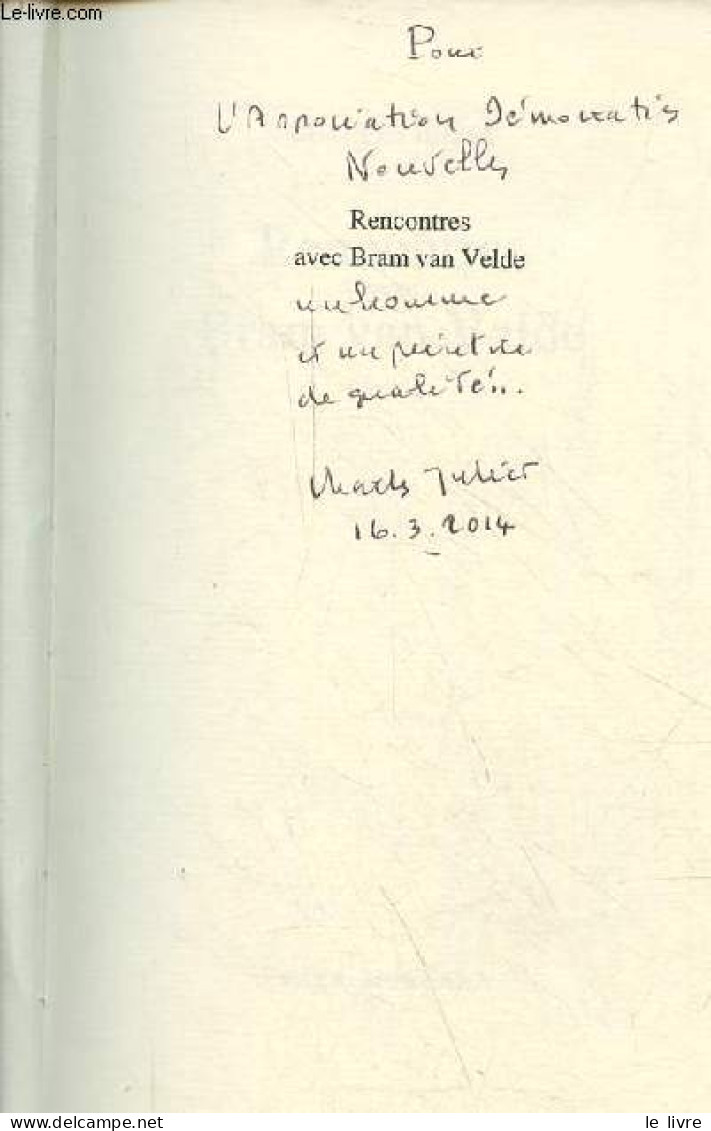 Le-livre.com
Pour
L'Association Démocraties
Nouvelles
Rencontres
avec Bram van Velde
un homme
et un peintre
de qualité..
Charles Juliet
16.3.2014
le livre